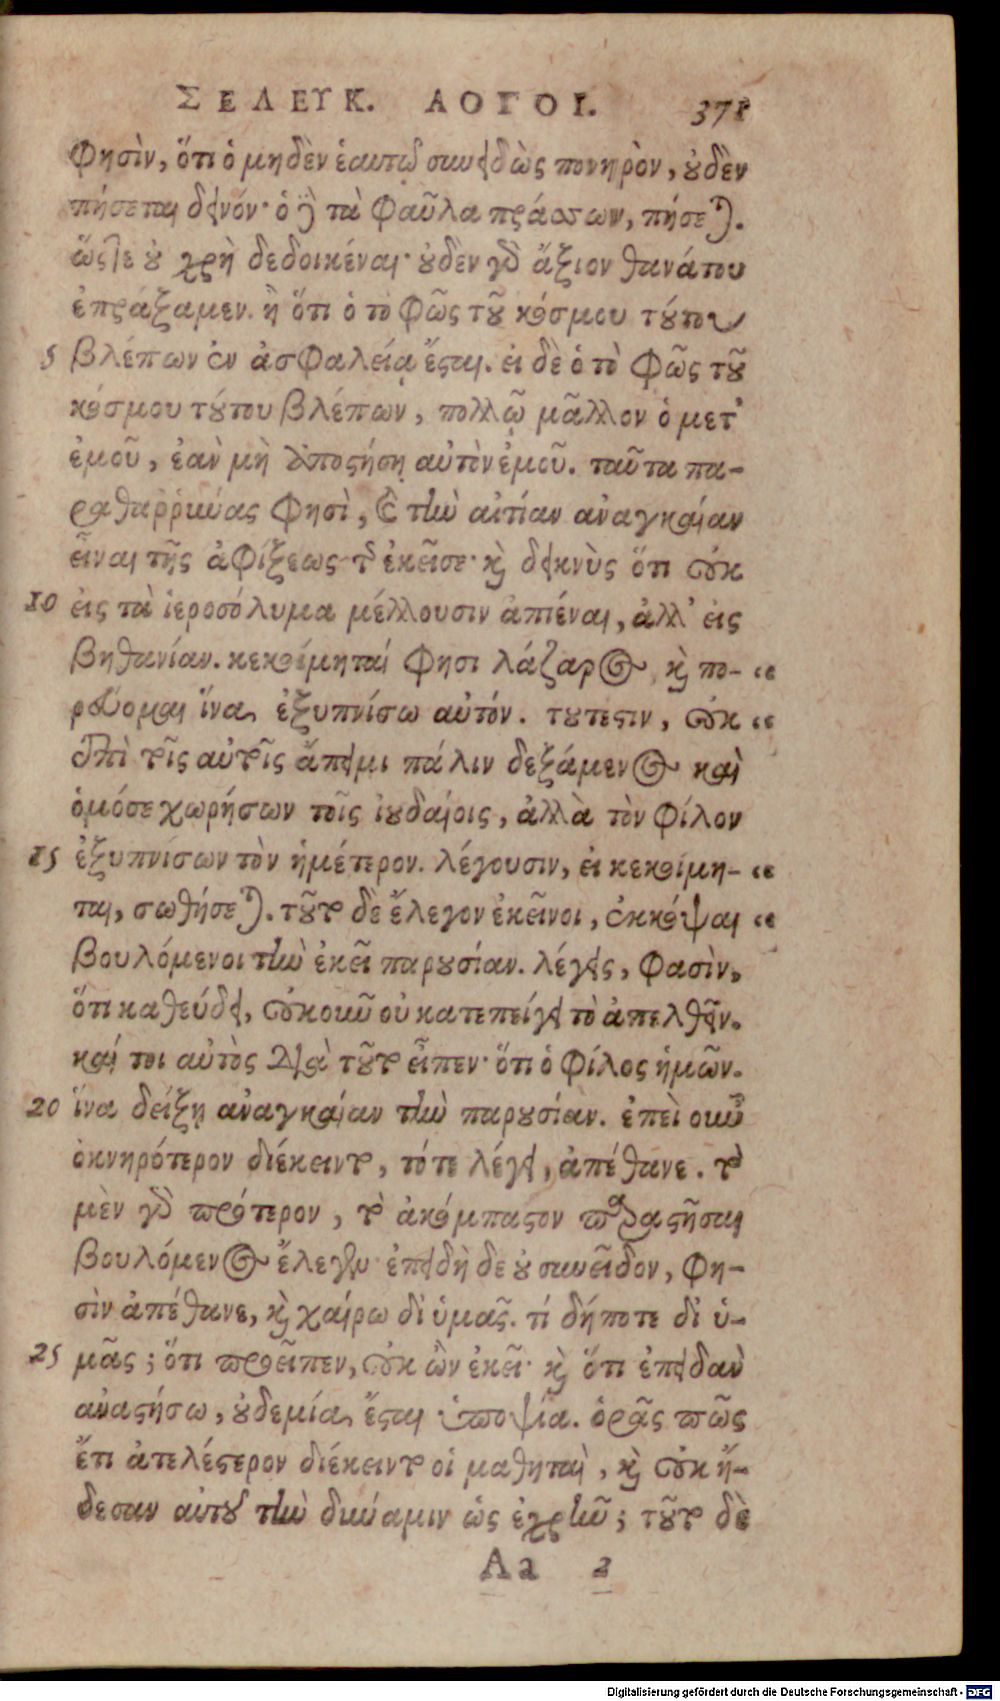 ΣΕΛΕΥΚ. ΛΟΓΟΙ. 371
φησὶν, ὅτι ὁ μηδὲν ἑαυτῷ συνειδὼς πονηρὸν, οὐδὲν
πήσεται δεινόν· ὁ δὲ τὰ φαῦλα πράσσων, πήσεται.
ὥστε οὐ χρὴ δεδοικέναι· οὐδὲν γὰρ ἄξιον θανάτου
ἐπράξαμεν. ἢ ὅτι ὁ τὸ φῶς τοῦ κόσμου τούτου
5 βλέπων ἐν ἀσφαλείᾳ ἔσται. εἰ δὲ ὁ τὸ φῶς τοῦ
κόσμου τούτου βλέπων, πολλῷ μᾶλλον ὁ μετ'
ἐμοῦ, ἐὰν μὴ ἀποστήσῃ αὐτὸν ἐμοῦ. ταῦτα πα-
ραθαρρύνας φησὶ, καὶ τὴν αἰτίαν ἀναγκαίαν
εἶναι τῆς ἀφίξεως τῆς ἐκεῖσε· καὶ δεικνὺς ὅτι οὐκ
10 εἰς τὰ ἱεροσόλυμα μέλλουσιν ἀπιέναι, ἀλλ' εἰς
βηθανίαν. κεκοίμηταί φησι λάζαρος, καὶ πο- “
ρεύομαι ἵνα ἐξυπνίσω αὐτόν. τουτέστιν, οὐκ “
ἐπὶ τοῖς αὐτοῖς ἄπειμι πάλιν δεξάμενος καὶ
ὁμόσε χωρήσων τοῖς ἰουδαίοις, ἀλλὰ τὸν φίλον
15 ἐξυπνίσων τὸν ἡμέτερον. λέγουσιν, εἰ κεκοίμη- “
ται, σωθήσεται. τοῦτο δὲ ἔλεγον ἐκεῖνοι, ἐκκόψαι “
βουλόμενοι τὴν ἐκεῖ παρουσίαν. λέγεις, φασὶν,
ὅτι καθεύδει, οὐκοῦν οὐ κατεπείγει τὸ ἀπελθεῖν.
καί τοι αὐτὸς διὰ τοῦτο εἶπεν· ὅτι ὁ φίλος ἡμῶν.
20 ἵνα δείξῃ ἀναγκαίαν τὴν παρουσίαν. ἐπεὶ οὖν
ὀκνηρότερον διέκειντο, τότε λέγει, ἀπέθανε. τὸ
μὲν γὰρ πρότερον, τὸ ἀκόμπαστον παραστῆσαι
βουλόμενος ἔλεγεν· ἐπειδὴ δὲ οὐ συνεῖδον, φη-
σὶν ἀπέθανε, καὶ χαίρω δι' ὑμᾶς. τί δήποτε δι' ὑ-
25 μᾶς; ὅτι προεῖπεν, οὐκ ὢν ἐκεῖ· καὶ ὅτι ἐπειδὰν
ἀναστήσω, οὐδεμία ἔσται ὑποψία. ὁρᾷς πῶς
ἔτι ἀτελέστερον διέκειντο οἱ μαθηταὶ, καὶ οὐκ ᾔ-
δεσαν αὐτοῦ τὴν δύναμιν ὡς ἐχρῆν; τοῦτο δὲ
Aa 2
Digitalisierung gefördert durch die Deutsche Forschungsgemeinschaft - DFG